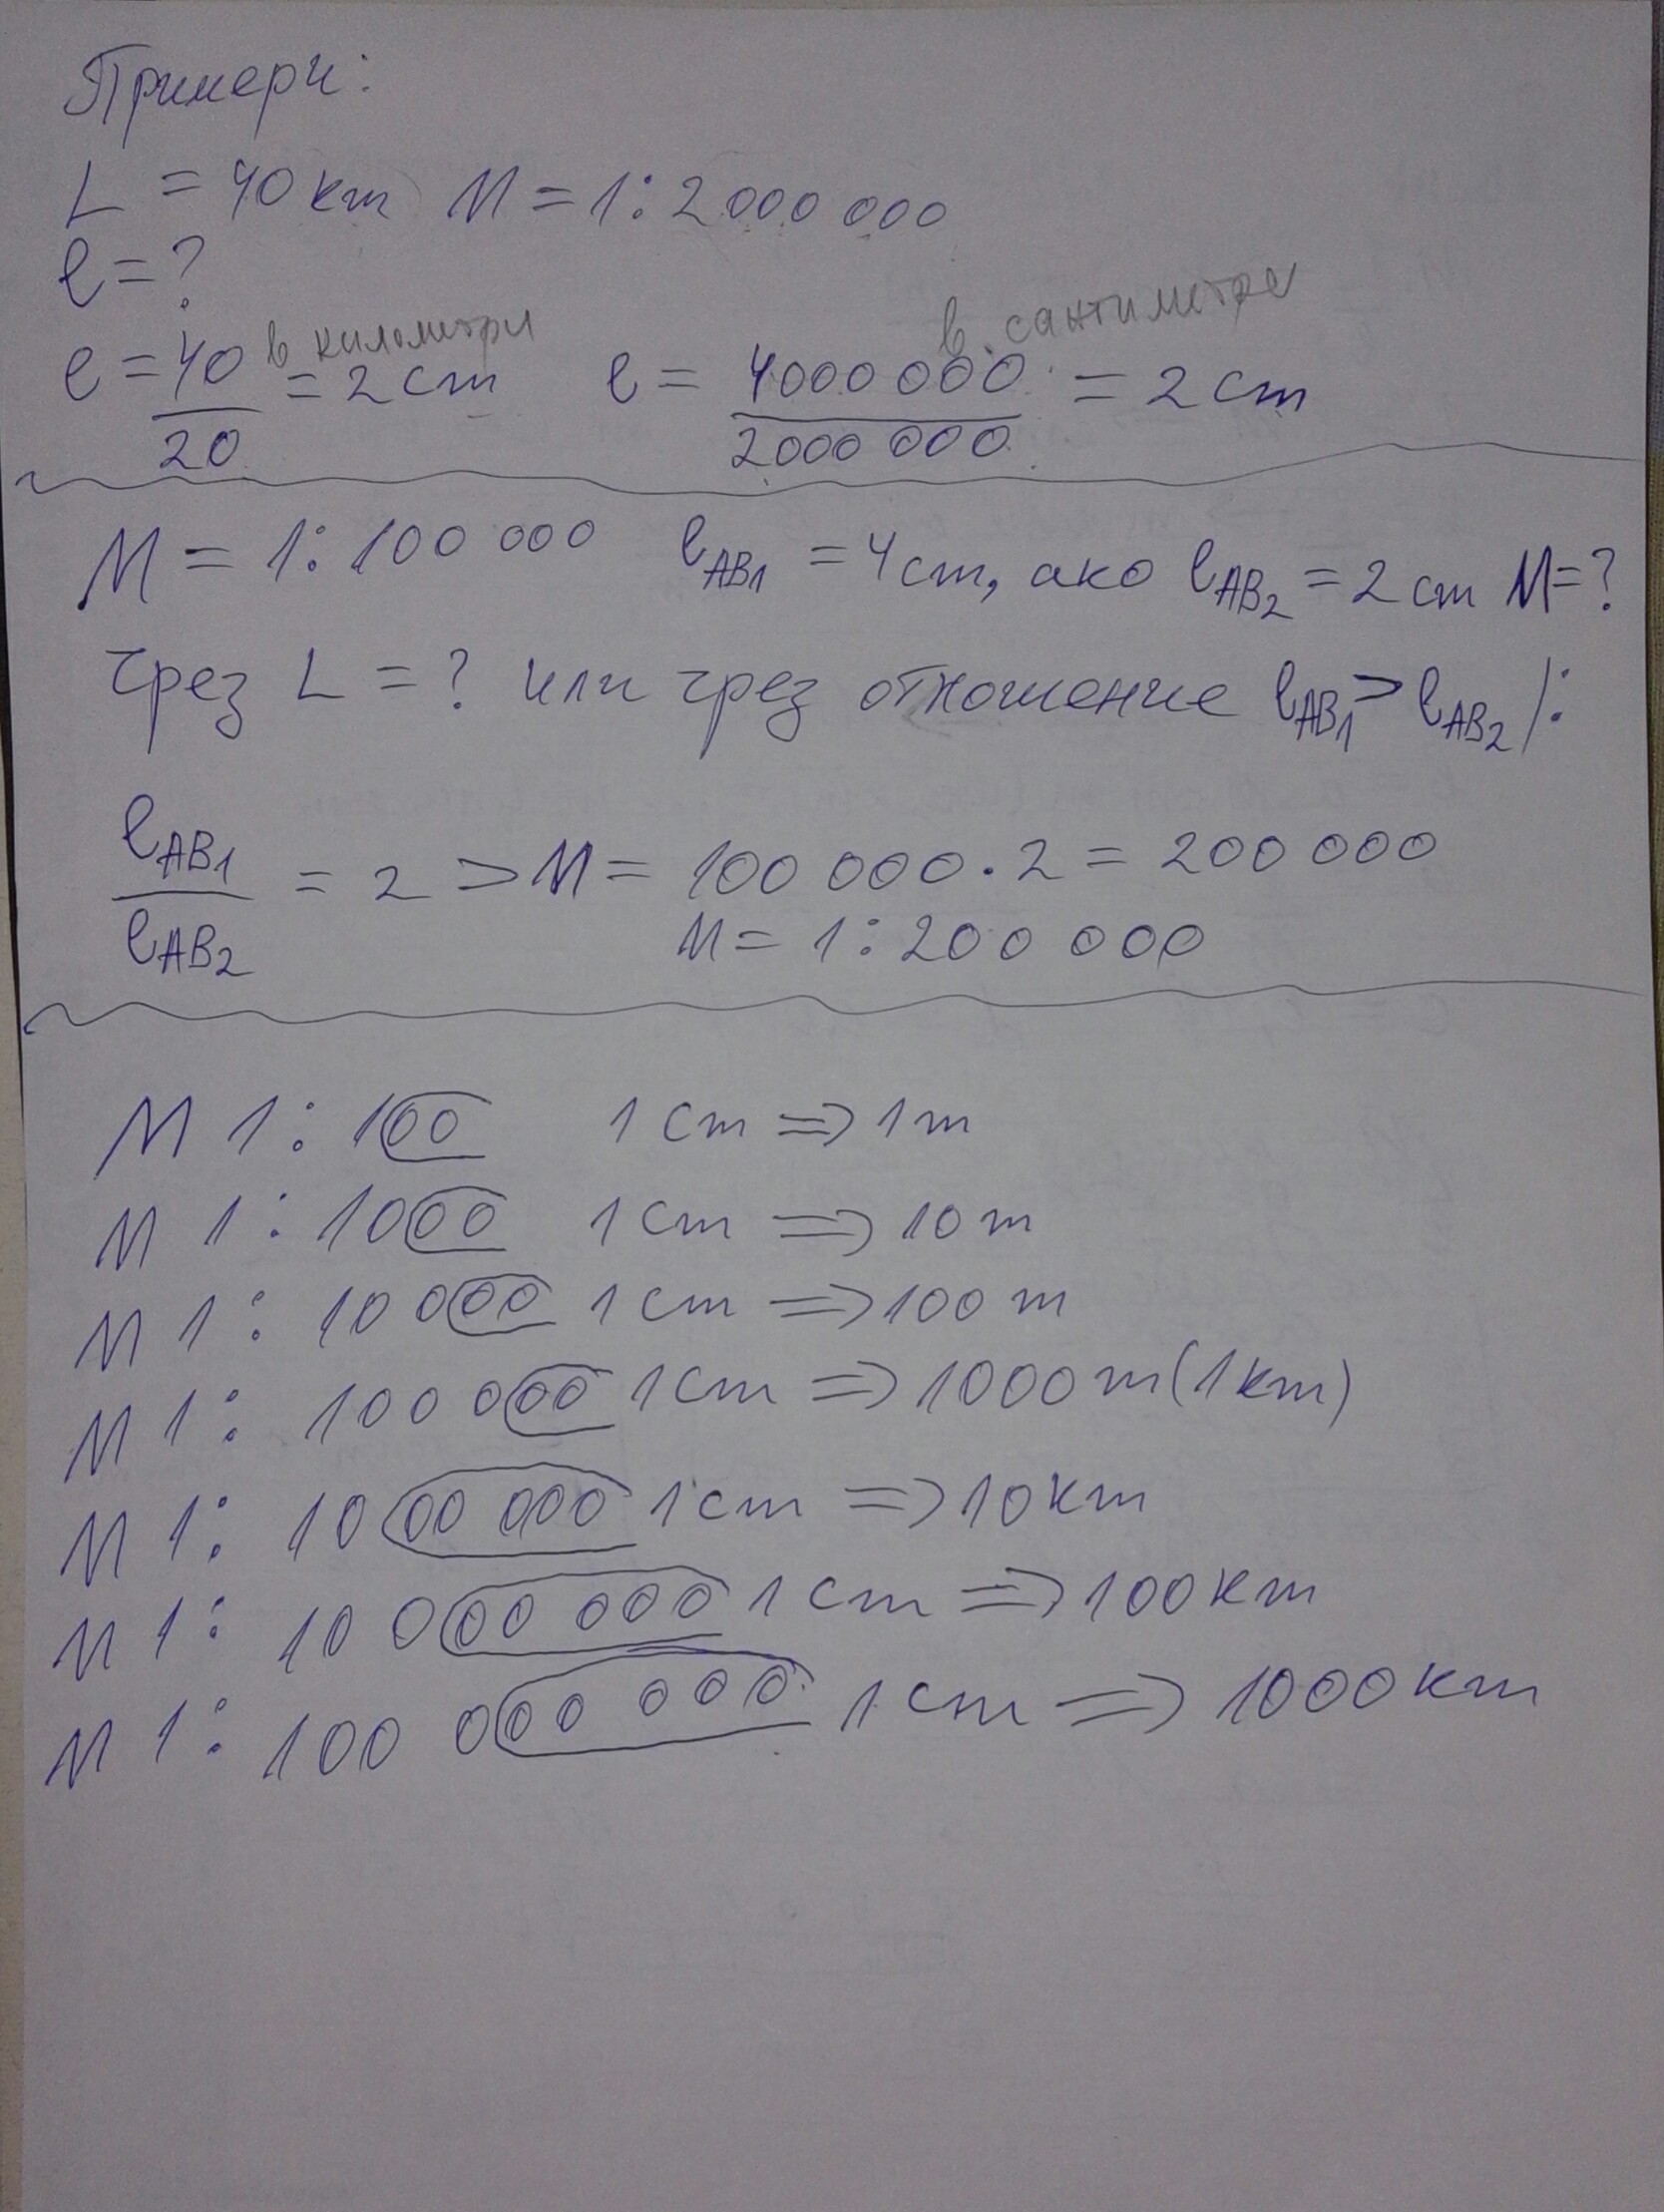 Примери:
L = 40 km M = 1:2 000 000
l = ?
l = 40/20 в километри = 2 cm l = 4000 000/2000 000 в сантиметре = 2 cm
M = 1: 100 000 lAB1 = 4 cm, ако lAB2 = 2 cm M = ?
чрез L = ? или чрез отношение lAB1 > lAB2 /:
lAB1/lAB2 = 2 => M = 100 000 . 2 = 200 000
M = 1: 200 000
M 1 : 100 1 cm => 1 m
M 1 : 1000 1 cm => 10 m
M 1 : 10 000 1 cm => 100 m
M 1 : 100 000 1 cm => 1000 m (1 km)
M 1 : 10 00 000 1 cm => 10 km
M 1 : 10 000 000 1 cm => 100 km
M 1 : 100 000 000 1 cm => 1000 km